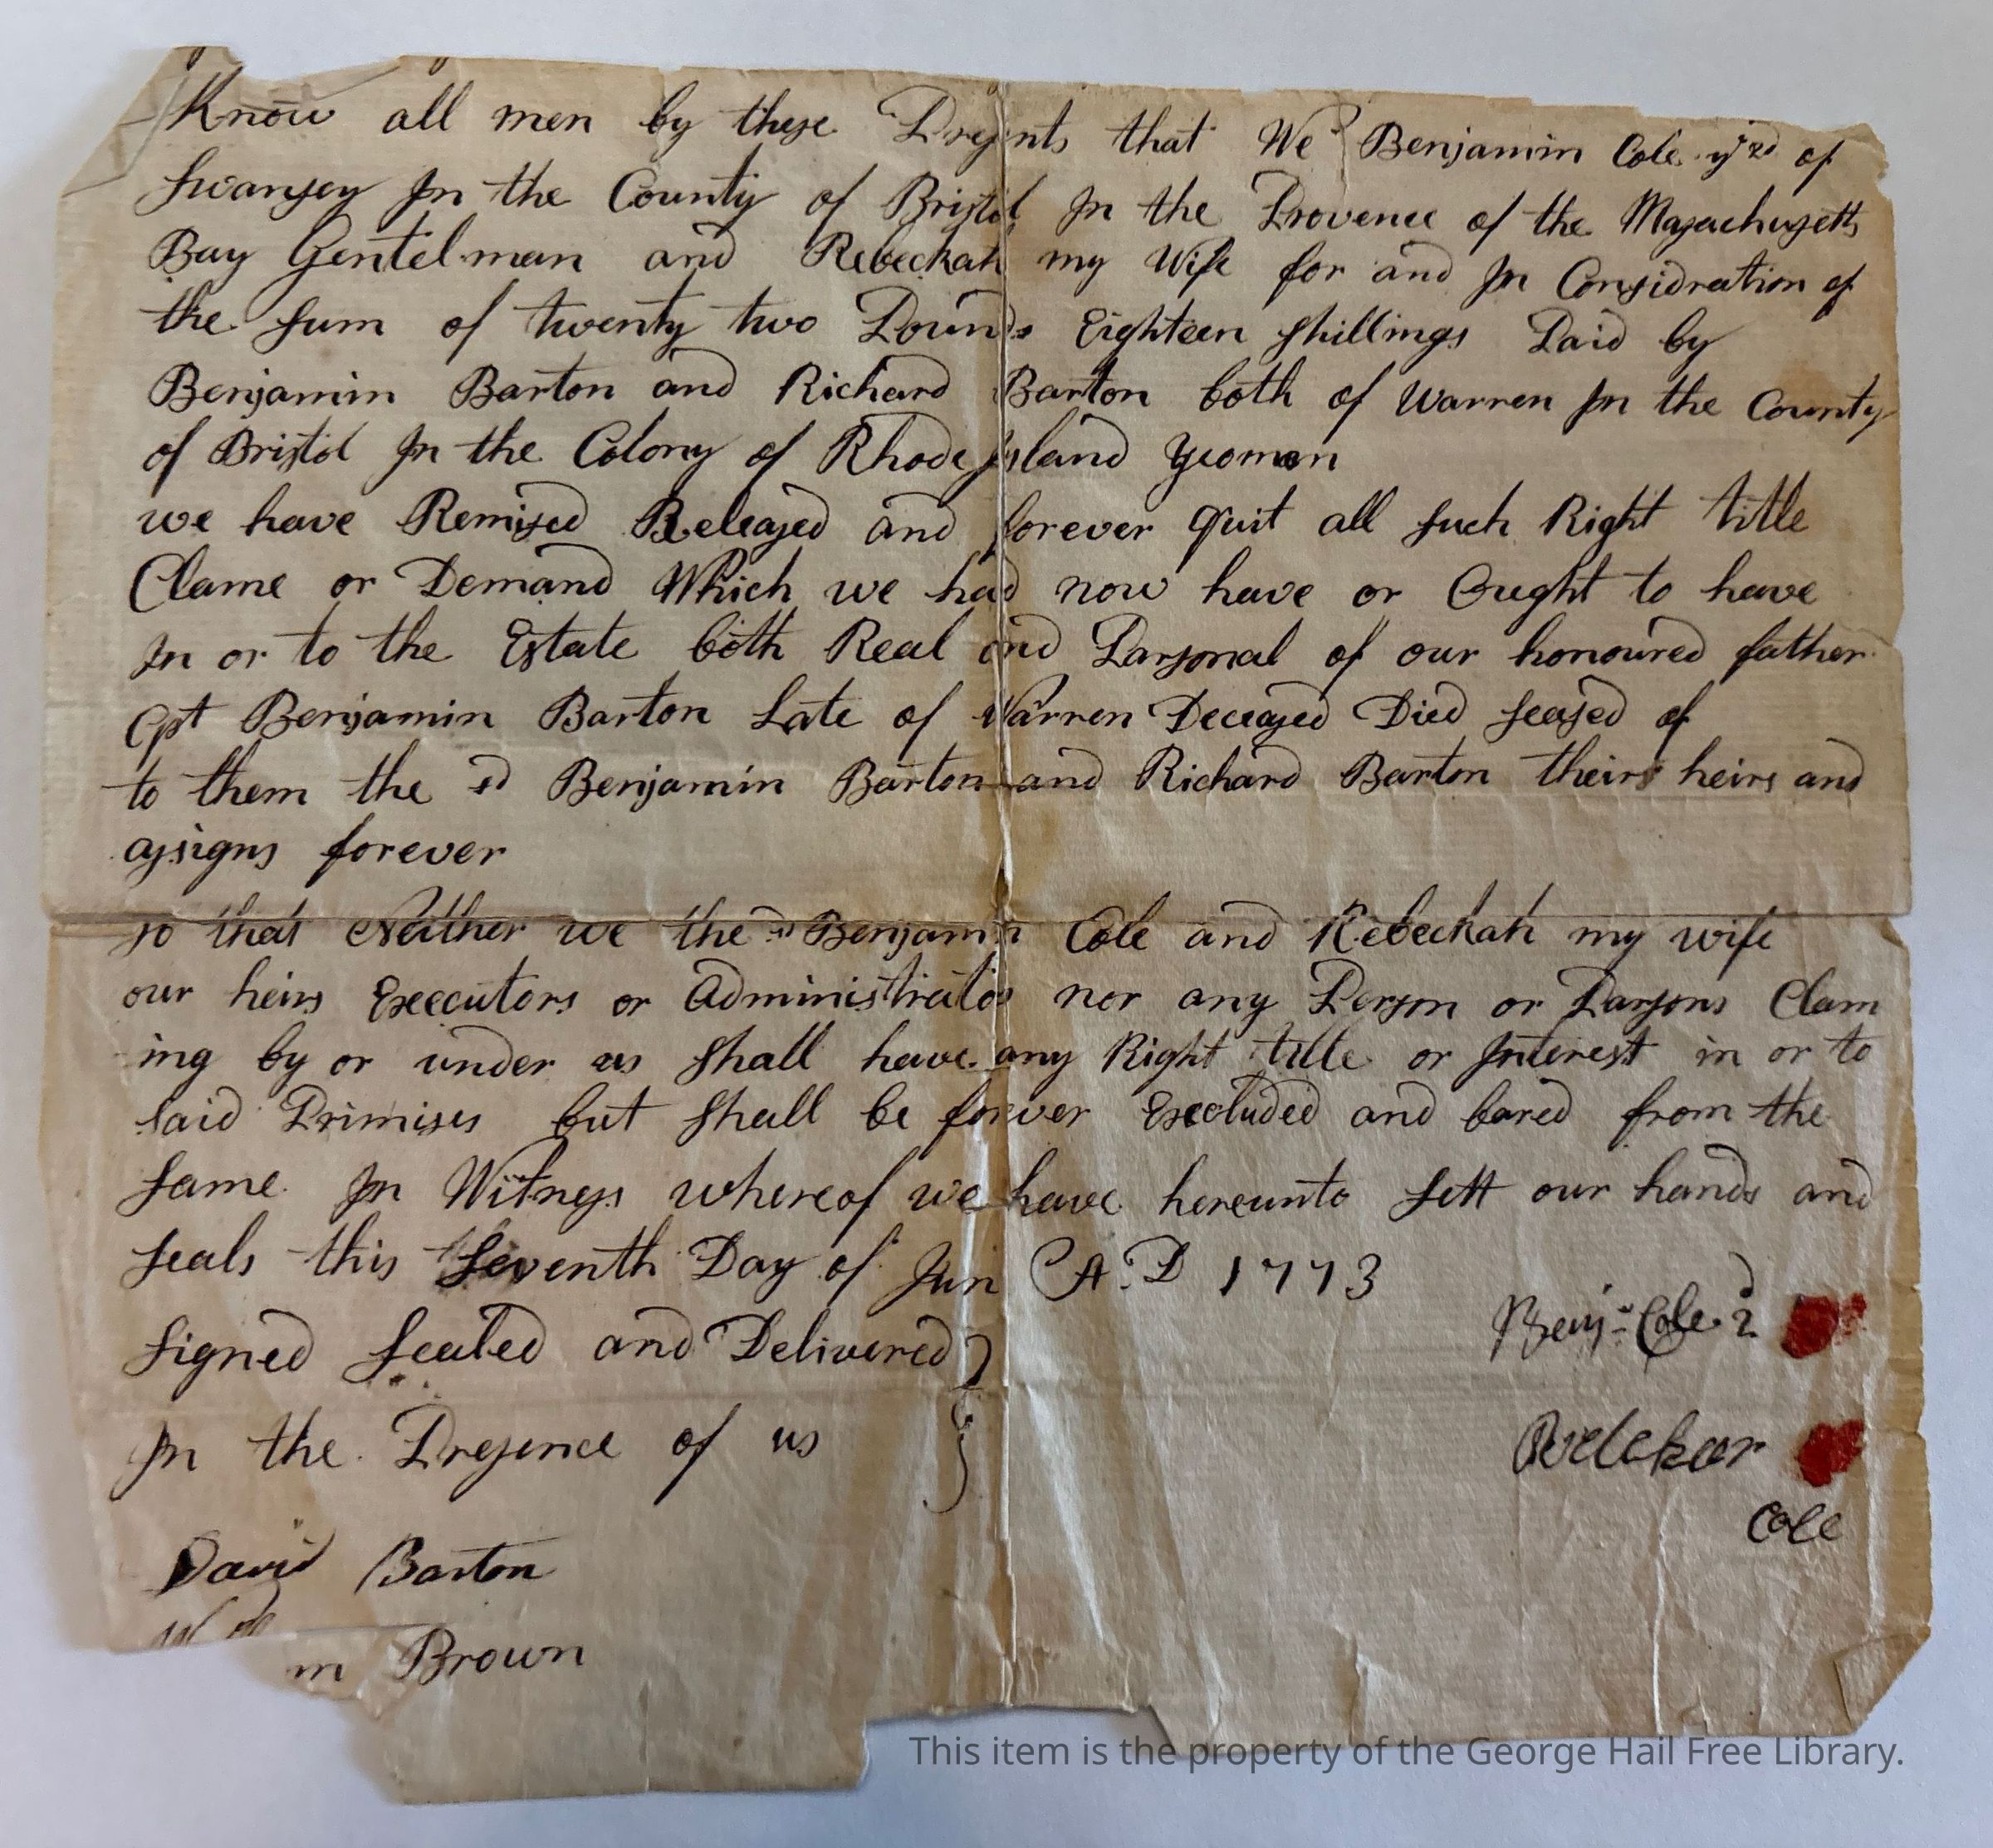 Know all men by these Presents that We Benjamin Cole ye 2d of
Swansey In the County of Bristol In the Provence of the Masachusetts
Bay Gentelman and Rebeckah my Wife for and In Considration of
the Sum of twenty two Pounds Eighteen Shillings Paid by
Benjamin Barton and Richard Barton both of Warren In the County
of Bristol In the Colony of Rhode Island Yeoman
we have Remised Released and forever Quit all Such Right title
Clame or Demand Which we had now have or Ought to have
In or to the Estate both Real and Parsonal of our honoured father
Cpt Benjamin Barton Late of Warren Deceased Died Seased of
to them the sd Benjamin Barton and Richard Barton theirs heirs and
assigns forever
so that Neather we the sd Benjamin Cole and Rebeckah my wife
our heirs Executors or Administrators nor any Person or Parsons Clam
ing by or under us Shall have any Right title or Interest in or to
said Primises but Shall be forever Excluded and bared from the
Same In Witness whereof we have hereunto Sett our hands and
Seals this Seventh Day of Jun A.D 1773
Signed Sealed and Delivered
In the Presence of us
Benj: Cole 2d
Rebekar
Cole
David Barton
m Brown
This item is the property of the George Hail Free Library.